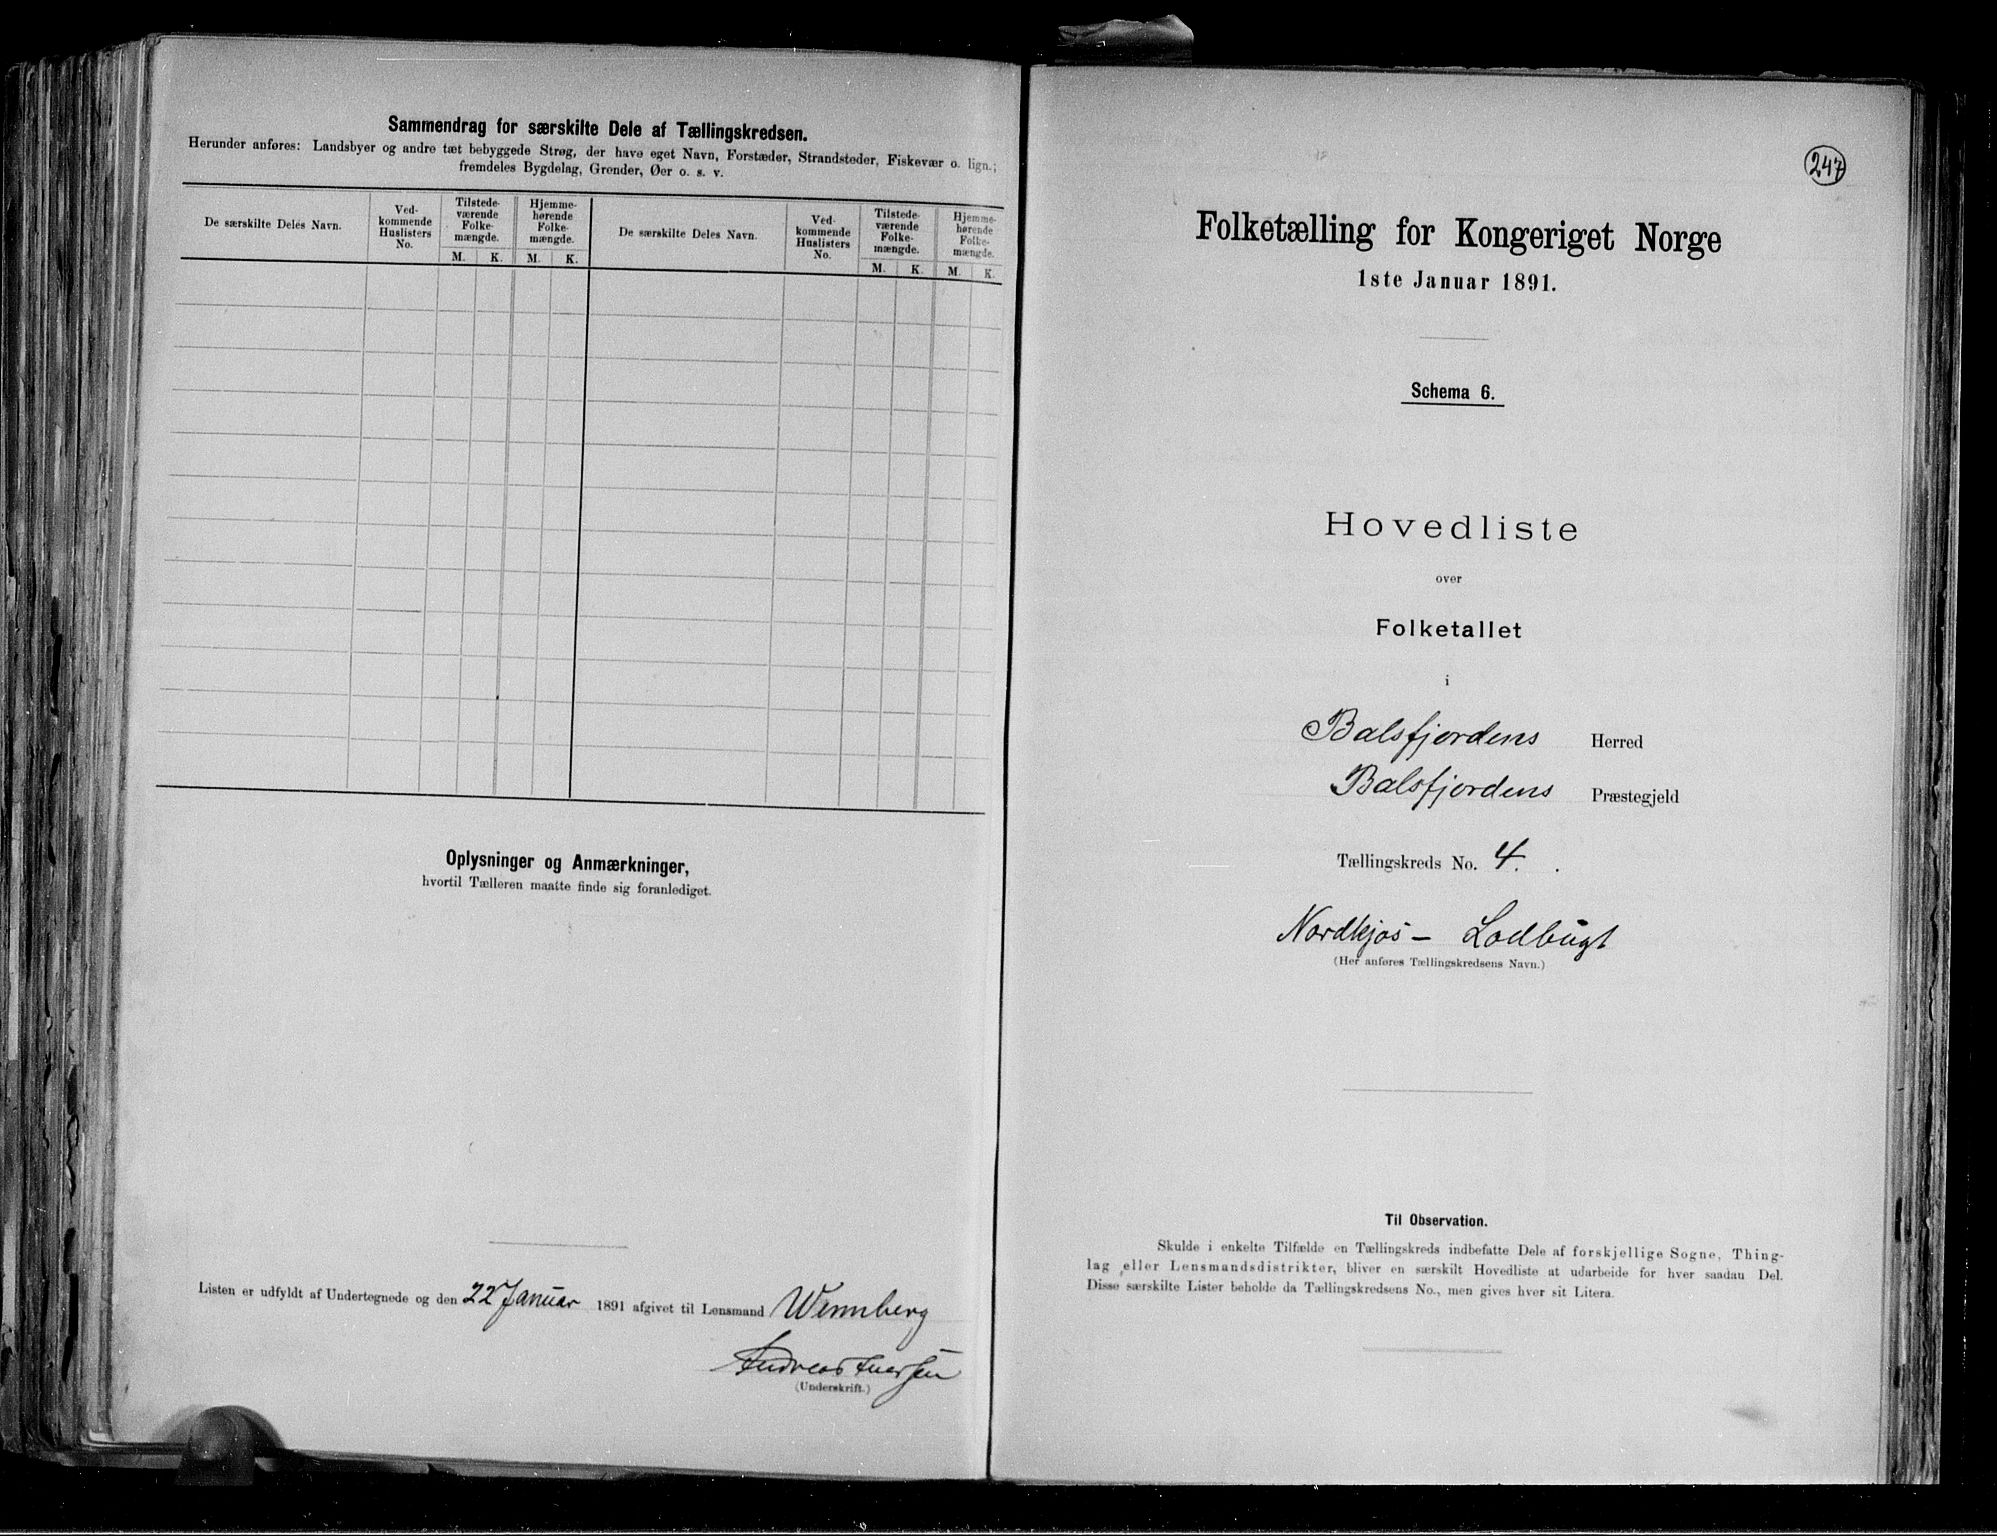 Sammendrag for særskilte Dele af Tællingskredsen.
Herunder anføres: Landsbyer og andre tæt bebyggede Strøg, der have eget Navn, Forstæder, Strandsteder, Fiskevær o. lign.;
fremdeles Bygdelag, Grender, Øer o. s. v.
De særskilte Deles Navn.
Ved-
kommende
Huslisters
No.
Tilstede-
værende
Folke-
mængde.
Hjemme-
hørende
Folke-
mængde.
De særskilte Deles Navn.
Ved-
kommende
Huslisters
No.
Tilstede-
værende
Folke-
mængde.
Hjemme-
hørende
Folke-
mængde.
M. K. M. K. M. K. M. K.
Oplysninger og Anmærkninger,
hvortil Tælleren maatte finde sig foranlediget.
Listen er udfyldt af Undertegnede og den 22 Januar 1891 afgivet til Lensmand Wennberg
Andreas Iversen
(Underskrift.)
247
Folketælling for Kongeriget Norge
1ste Januar 1891.
Schema 6.
Hovedliste
over
Folketallet
i
Balsfjordens Herred
Balsfjordens Præstegjeld
Tællingskreds No. 4.
Nordkjos – Ladbugt
(Her anføres Tællingskredsens Navn.)
Til Observation.
Skulde i enkelte Tilfælde en Tællingskreds indbefatte Dele af forskjellige Sogne, Thing-
lag eller Lensmandsdistrikter, bliver en særskilt Hovedliste at udarbeide for hver saadau Del.
Disse særskilte Lister beholde da Tællingskredsens No., men gives hver sit Litera.